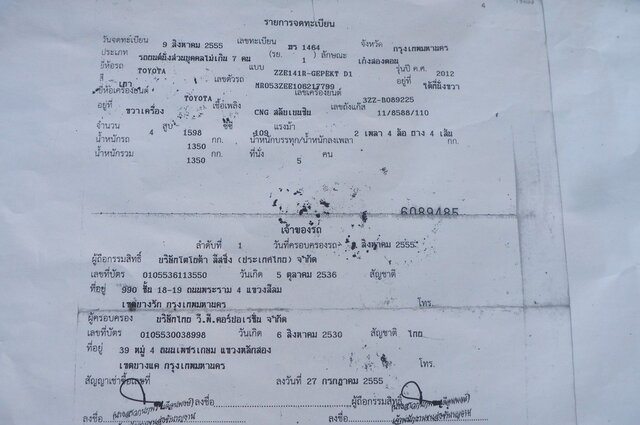 รายการจดทะเบียน
วันจดทะเบียน 9 สิงหาคม 2555 เลขทะเบียน 1464 จังหวัด กรุงเทพมหานคร
ประเภท รถยนต์นั่งส่วนบุคคลไม่เกิน 7 คน (รย. 1 ) ลักษณะ เก๋งสองตอน
ยี่ห้อรถ TOYOTA แบบ ZZE141R-GEPEKT D1 รุ่นปี ค.ศ. 2012
สี เทา เลขตัวรถ MR053ZEE106217799 อยู่ที่ ใต้ที่นั่งขวา
ยี่ห้อเครื่องยนต์ TOYOTA เลขเครื่องยนต์ 3ZZ-B089225
อยู่ที่ ขวาเครื่อง เชื้อเพลิง CNG สลับเบนซิน เลขถังแก๊ส 11/8588/110
จำนวน 4 สูบ 1598 ซีซี 109 แรงม้า 2 เพลา 4 ล้อ ยาง 4 เส้น
น้ำหนักรถ 1350 กก. น้ำหนักบรรทุก/น้ำหนักลงเพลา กก.
น้ำหนักรวม 1350 กก. ที่นั่ง 5 คน
6089485
เจ้าของรถ
ลำดับที่ 1 วันที่ครอบครองรถ สิงหาคม 2555
ผู้ถือกรรมสิทธิ์ บริษัทโตโยต้า ลีสซิ่ง (ประเทศไทย) จำกัด
เลขที่บัตร 0105536113550 วันเกิด 5 ตุลาคม 2536 สัญชาติ
ที่อยู่ 990 ชั้น 18-19 ถนนพระราม 4 แขวงสีลม
เขตบางรัก กรุงเทพมหานคร โทร.
ผู้ครอบครอง บริษัทไทย วี.พี.คอร์ปอเรชั่น จำกัด
เลขที่บัตร 0105530038998 วันเกิด 6 สิงหาคม 2530 สัญชาติ ไทย
ที่อยู่ 39 หมู่ 4 ถนนเพชรเกษม แขวงหลักสอง
เขตบางแค กรุงเทพมหานคร โทร.
สัญญาเช่าซื้อเลขที่ ลงวันที่ 27 กรกฎาคม 2555
ลงชื่อ ผู้ถือกรรมสิทธิ์
ลงชื่อ ลงชื่อ